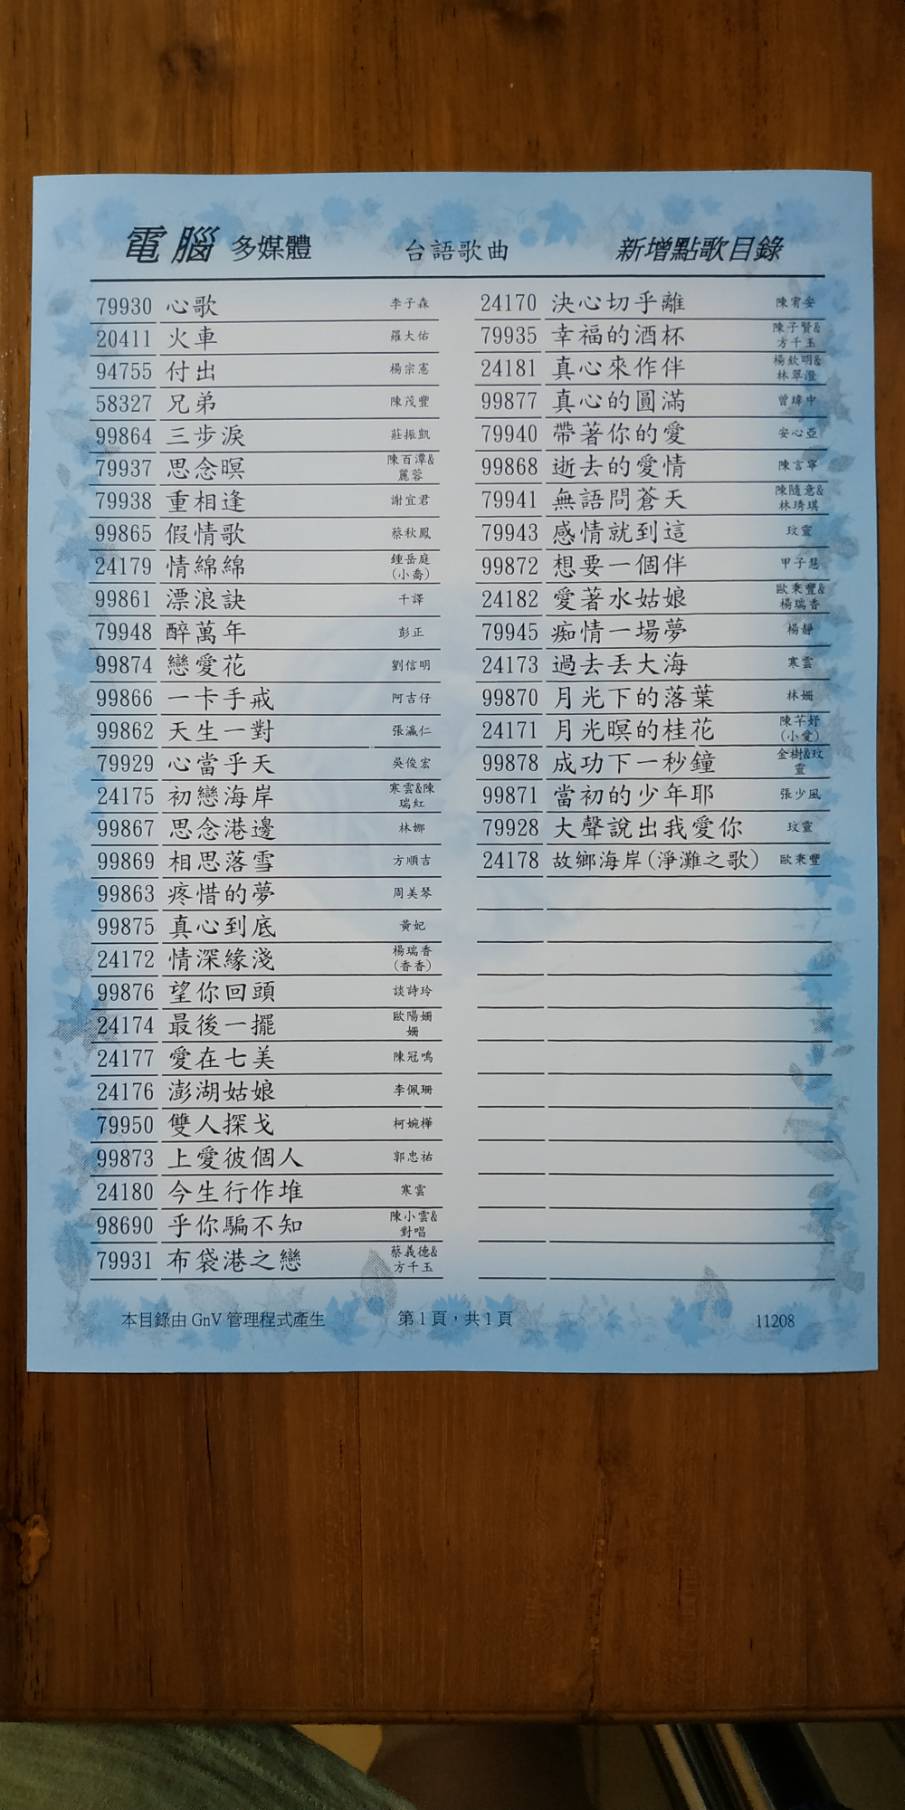 電腦 多媒體 台語歌曲 新增點歌目錄
79930 心歌 李子森
20411 火車 羅大佑
94755 付出 楊宗憲
58327 兄弟 陳茂豐
99864 三步淚 莊振凱
79937 思念暝 陳百潭&麗蓉
79938 重相逢 謝宜君
99865 假情歌 蔡秋鳳
24179 情綿綿 鍾岳庭(小喬)
99861 漂浪訣 千譯
79948 醉萬年 彭正
99874 戀愛花 劉信明
99866 一卡手戒 阿吉仔
99862 天生一對 張瀛仁
79929 心當乎天 吳俊宏
24175 初戀海岸 寒雲&陳瑞紅
99867 思念港邊 林娜
99869 相思落雪 方順吉
99863 疼惜的夢 周美琴
99875 真心到底 黃妃
24172 情深緣淺 楊瑞香(香香)
99876 望你回頭 談詩玲
24174 最後一擺 歐陽姍姍
24177 愛在七美 陳冠鳴
24176 澎湖姑娘 李佩珊
79950 雙人探戈 柯婉樺
99873 上愛彼個人 郭忠祐
24180 今生行作堆 寒雲
98690 乎你騙不知 陳小雲&對唱
79931 布袋港之戀 蔡義德&方千玉
24170 決心切乎離 陳宥安
79935 幸福的酒杯 陳子賢&方千玉
24181 真心來作伴 楊欽明&林翠澄
99877 真心的圓滿 曾瑋中
79940 帶著你的愛 安心亞
99868 逝去的愛情 陳言寧
79941 無語問蒼天 陳隨意&林琦琪
79943 感情就到這 玟靈
99872 想要一個伴 甲子慧
24182 愛著水姑娘 歐秉豐&楊瑞香
79945 痴情一場夢 楊靜
24173 過去丟大海 寒雲
99870 月光下的落葉 林姍
24171 月光暝的桂花 陳芊妤(小愛)
99878 成功下一秒鐘 金樹&玟靈
99871 當初的少年耶 張少風
79928 大聲說出我愛你 玟靈
24178 故鄉海岸(淨灘之歌) 歐秉豐
本目錄由 GnV 管理程式產生 第1頁，共1頁 11208